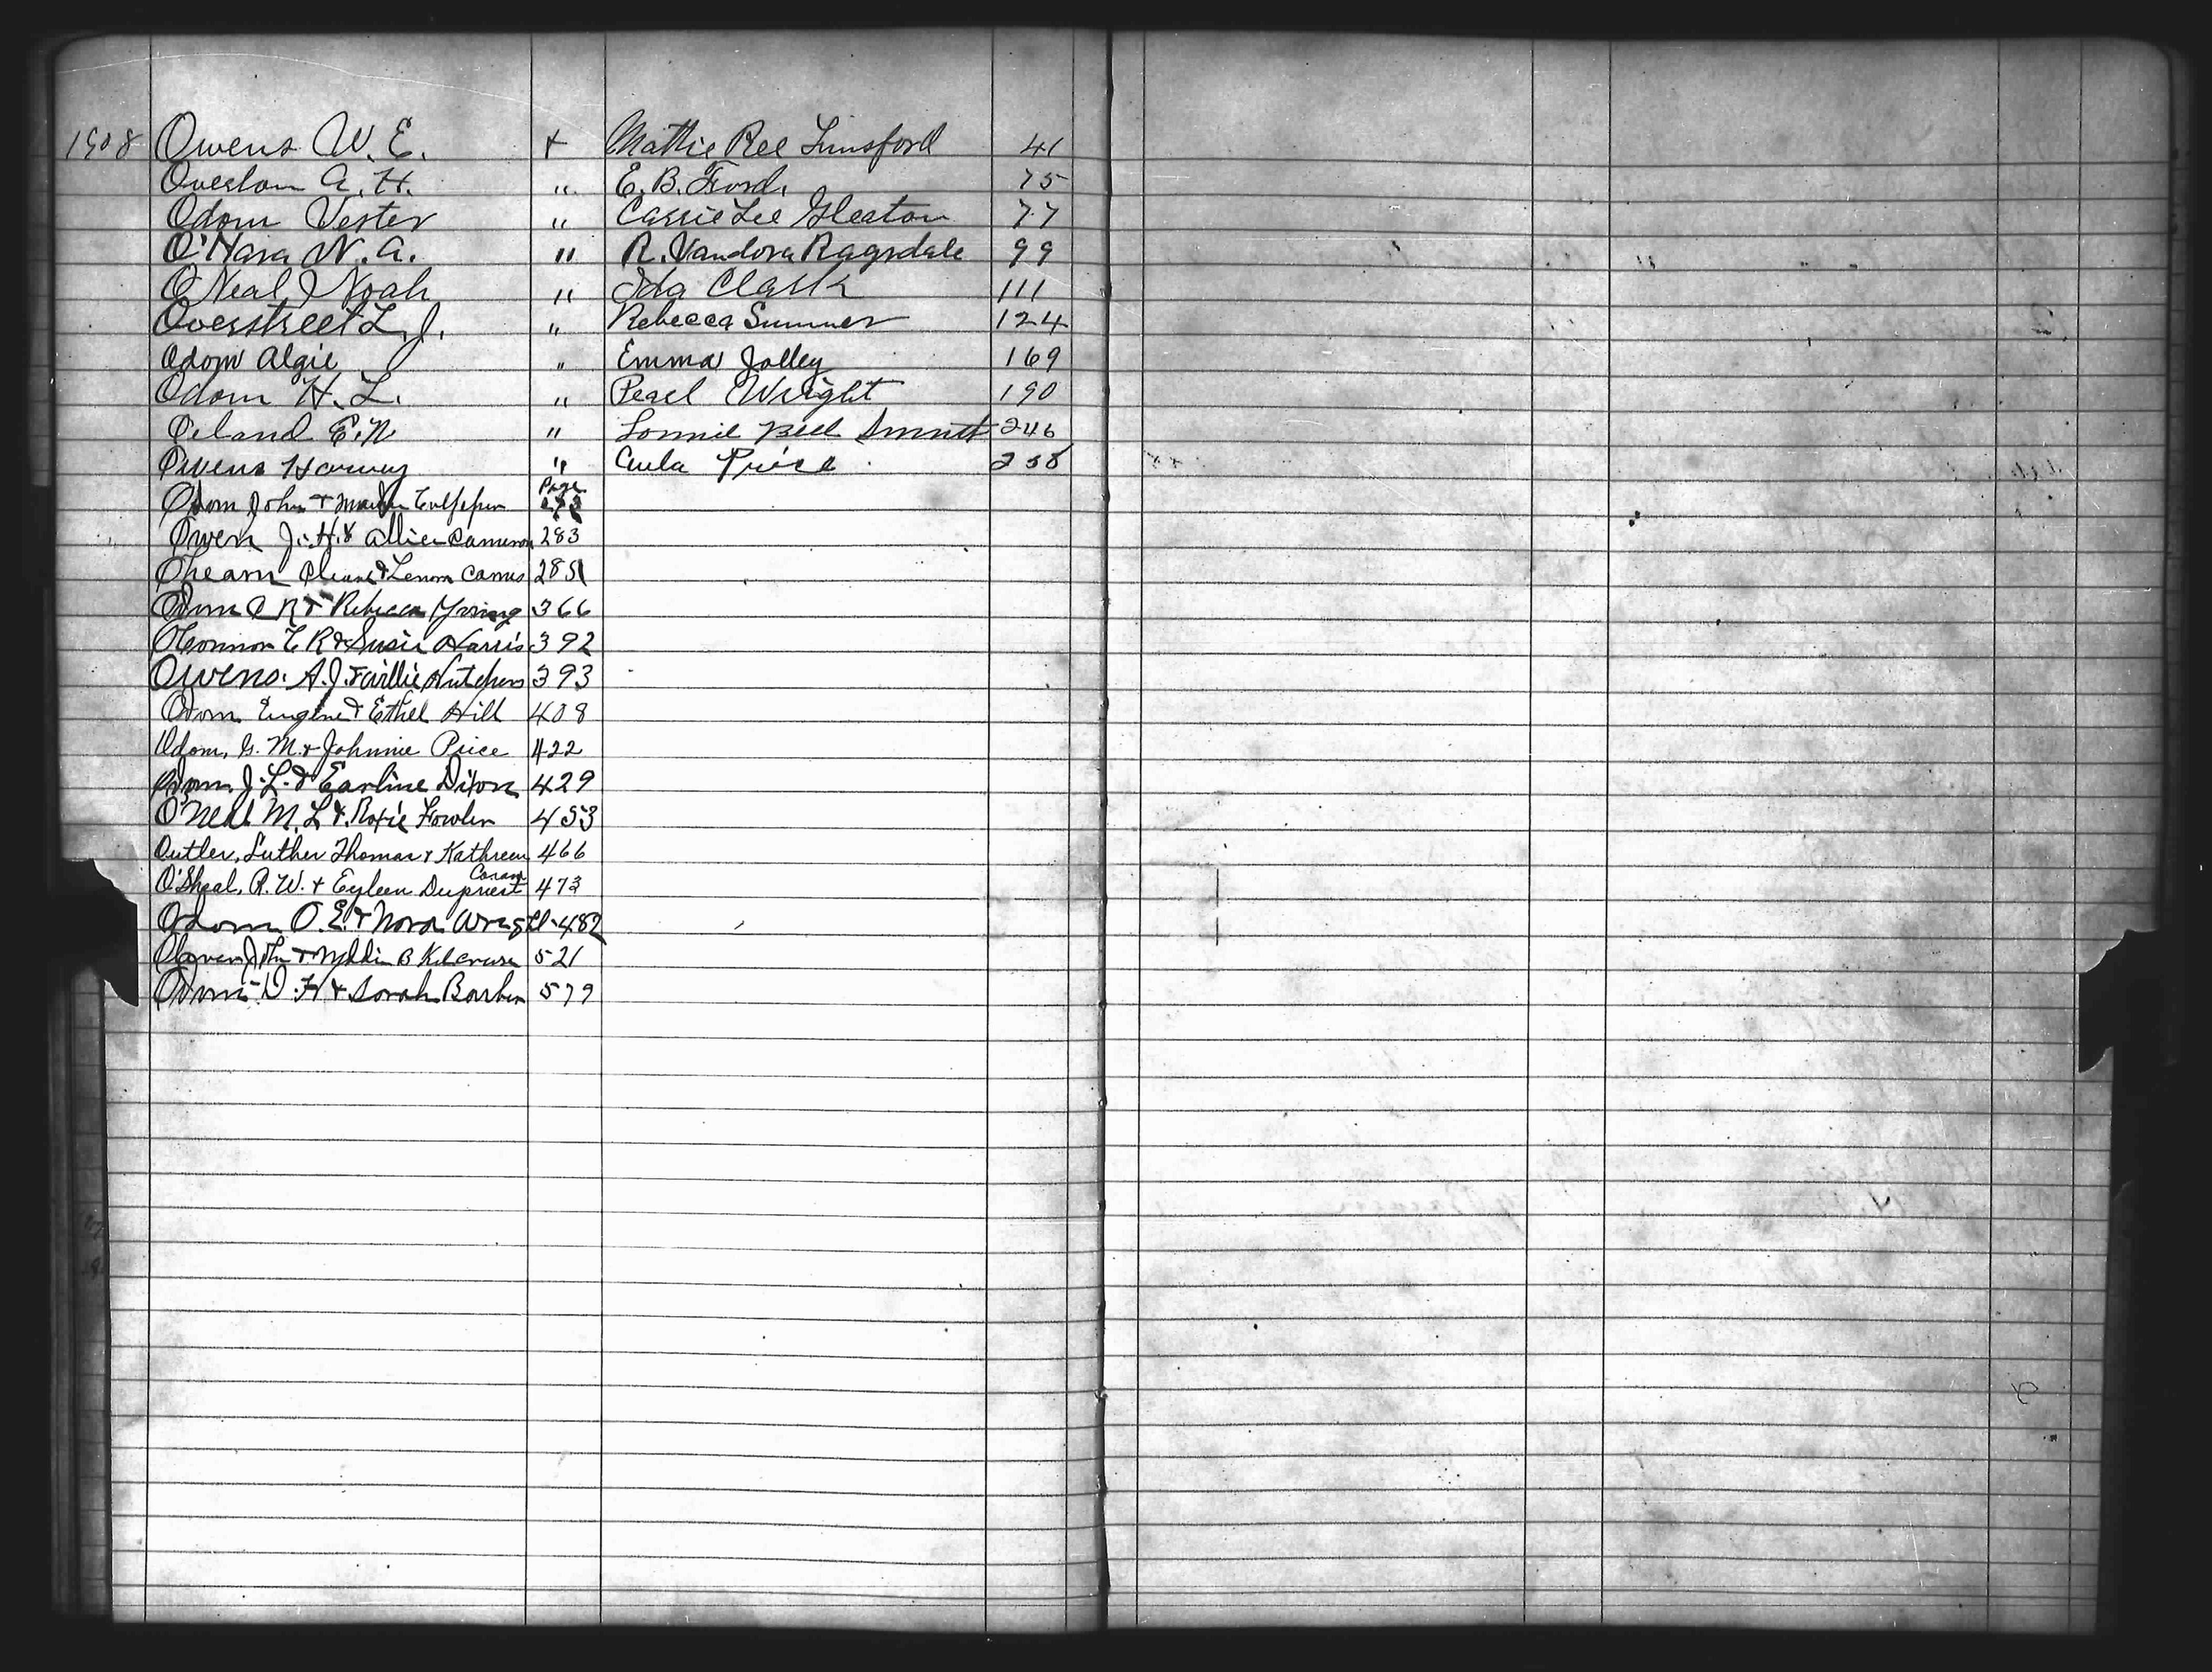 1908 Owens W. E. + Mattie Ree Lunsford 41
Overton A. H. " E. B. Ford. 75
Odom Vester " Cassie Lee Gleaton 77
O'Hara W. A. " R. Vandora Ragsdale 99
O'Neal Noah " Ida Clark 111
Overstreet L. J. " Rebecca Sumner 124
Odom Algie " Emma Jolley 169
Odom H. L. " Pearl Wright 190
E. N " Lonnie Bell 246
Owens Harvey " Price 258
Page
Odom John + Culpepper
Owen J. H. & Allie Cameron 283
& Lenora 285
Odom & Rebecca Young 366
OConnor & Susie Harris 392
Owens. A. J. + Willie Hutchens 393
Odom Eugene & Ethel Hill 408
Odom, G. M. & Johnnie Price 422
Odom. J. L. & Earline Dixon 429
O'Neal M. L. & Roxie Fowler 453
Outler, Luther Thomas & Kathreen 466
O'Sheal, R. W. + Eyleen Dupriest 473
Odom O. E. & Nora Wright - 482
John + B 521
Odom D. F. & Sarah Barber 579